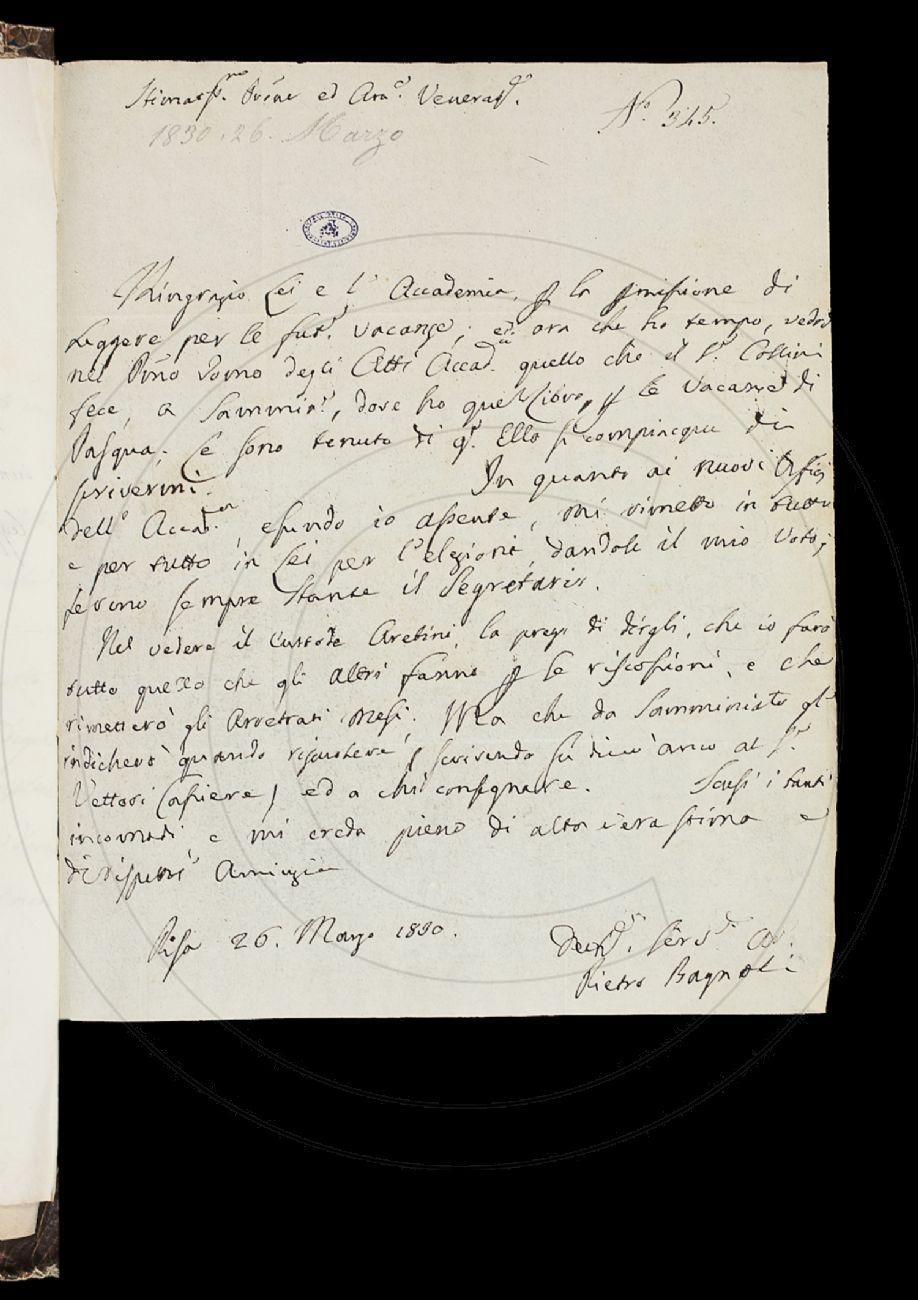 Stimatiss.mo Pne ed Am.co Venerat.mo
N.° 345.
1830. 26. Marzo
Ringrazio Lei e l'Accademia, p la pmissione di
Leggere per le fut.e vacanze; ed ora che ho tempo, vedrò
nel Pmo Tomo degli Atti Accad.ci quello che il S.r Collini
fece, a Samminia.o, dove ho quel Libro, p le Vacanze di
Pasqua; Le sono tenuto di q.to Ella si compiacque di
scrivermi. In quanto ai nuovi Ufizj
dell'Accad.ia, essendo io assente, mi rimetto in tutto
e per tutto in Lei per l'elezioni, dandole il mio Voto;
fermo sempre stante il Segretario.
Nel vedere il Custode Aretini, la prego di dirgli, che io farò
tutto quello che gli altri fanno p le riscossioni, e che
rimetterò gli Arretrati Mesi. Ma che da Samminiato gl'
indicherò quando riscuotere, scrivendo si dica anco al S.r
Vettori Cassiere) ed a chi consegnare. Scusi i tanti
incomodi, e mi creda pieno di alta vera stima e
di rispett.
Amicizia
Pisa 26. Marzo 1830.
Dev.mo Serv.re A.
Pietro Bagnoli